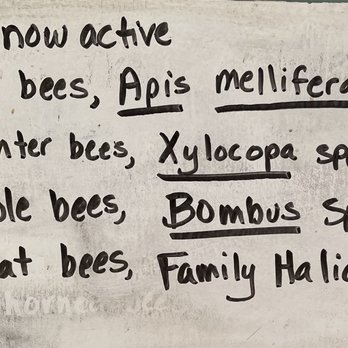 now active
bees, Apis mellifera
nter bees, Xylocopa sp
le bees, Bombus sp
at bees, Family Halic